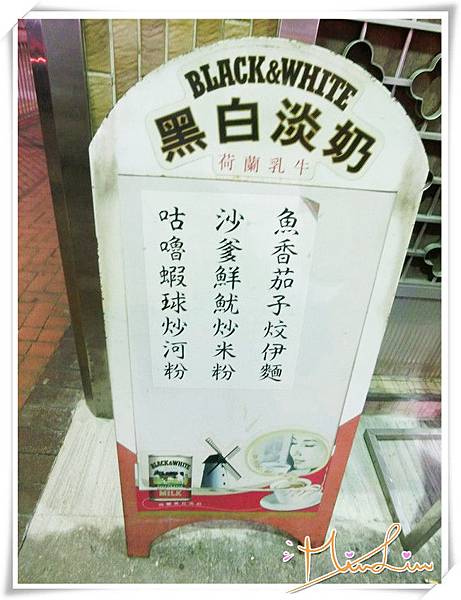 BLACK&WHITE
黑白淡奶
荷蘭乳牛
魚香茄子炆伊麵
沙爹鮮魷炒米粉
咕嚕蝦球炒河粉
BLACK&WHITE
MILK